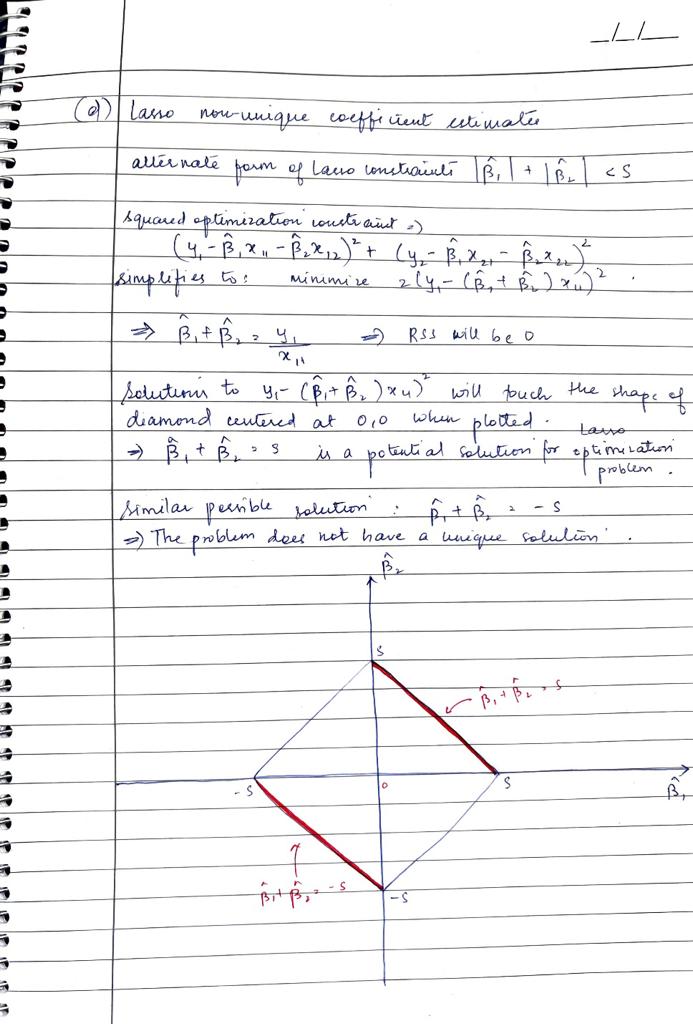 _/_/_
(d) Lasso non-unique coefficient estimates
alternate form of Lasso constraints |β̂₁| + |β̂₂| < S
squared optimization constraint ⇒
(y₁ - β̂₁x₁₁ - β̂₂x₁₂)² + (y₂ - β̂₁x₂₁ - β̂₂x₂₂)²
simplifies to: minimize 2(y₁ - (β̂₁ + β̂₂) x₁₁)² .
⇒ β̂₁ + β̂₂ = y₁/x₁₁ ⇒ RSS will be 0
Solutions to y₁ - (β̂₁ + β̂₂) x₁₁)² will touch the shape of
diamond centered at 0,0 when plotted.
⇒ β̂₁ + β̂₂ = s is a potential solution for Lasso optimization
problem.
Similar possible solution : β̂₁ + β̂₂ = - s
⇒ The problem does not have a unique solution .
β̂₂
S
β̂₁ + β̂₂ = s
-S
0
S
β̂₁
β̂₁ + β̂₂ = -s
-S